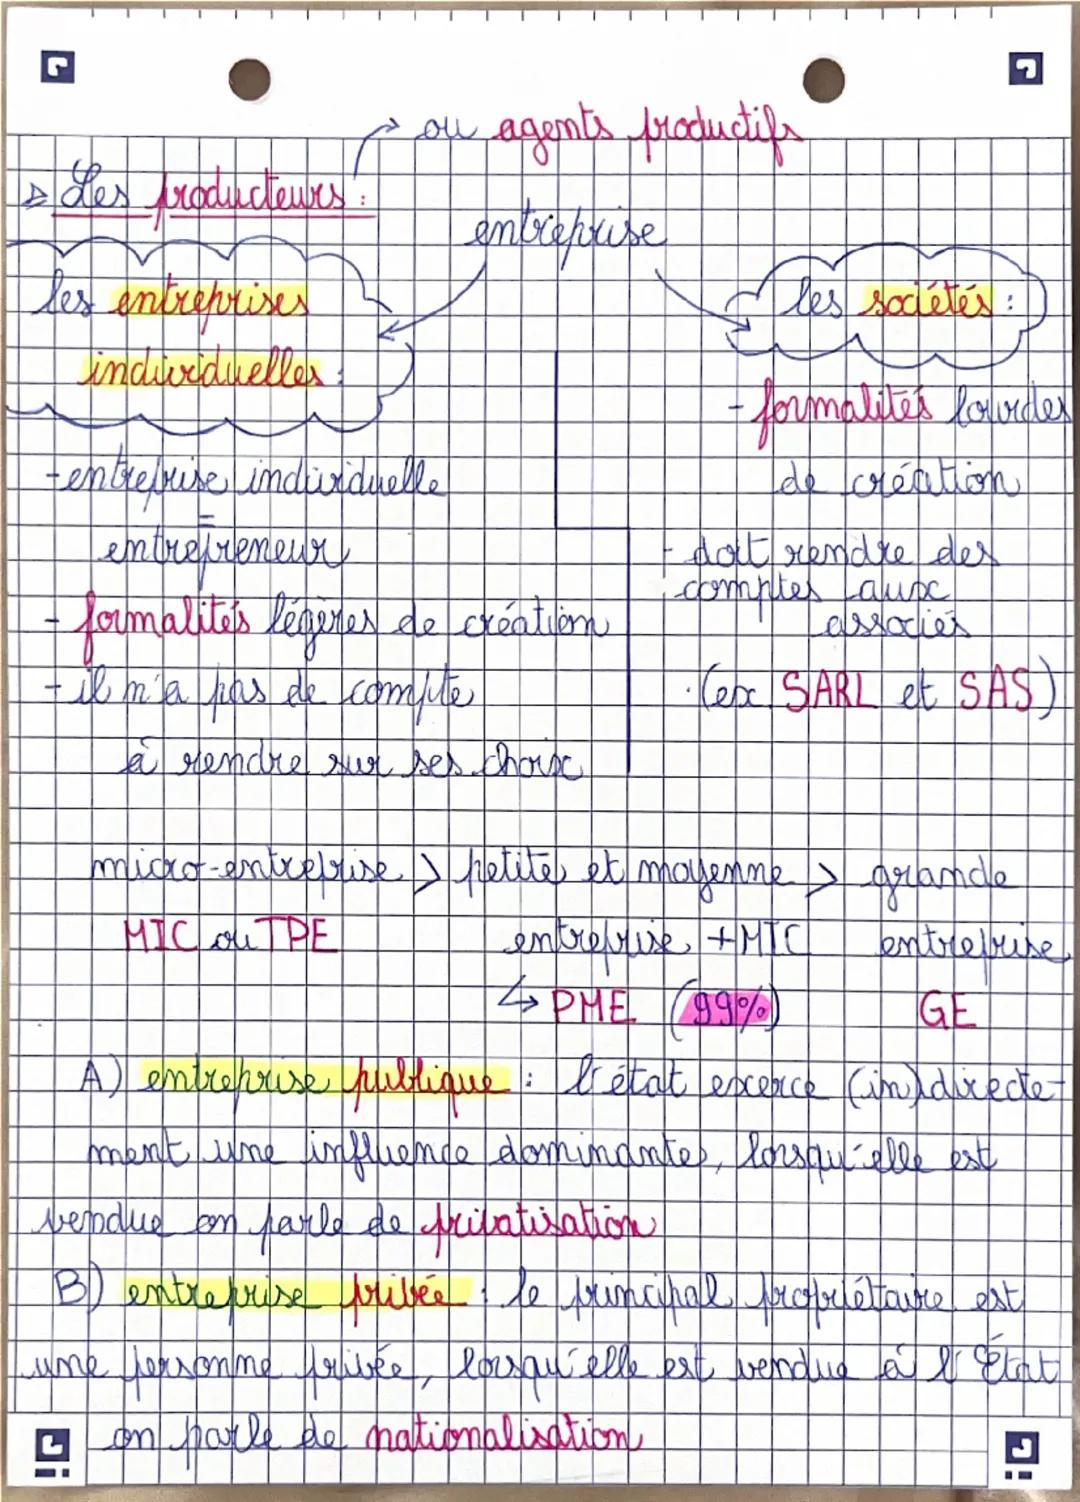 → ou agents productifs
▷ Les producteurs :
entreprise
les entreprises
individuelles :
- entreprise individuelle
=
entrepreneur
- formalités légères de création
- il n'a pas de compte
à rendre sur ses choix
les sociétés :
- formalités lourdes
de création
- doit rendre des
comptes aux
associés
(ex SARL et SAS)
micro-entreprise > petite et moyenne > grande
MIC ou TPE entreprise + MIC entreprise
↳ PME (99%) GE
A) entreprise publique : l'état excerce (in)directe-
ment une influence dominantes, lorsqu'elle est
vendue on parle de privatisation
B) entreprise privée : le principal propriétaire est
une personne privée, lorsqu'elle est vendue à l'État
on parle de nationalisation